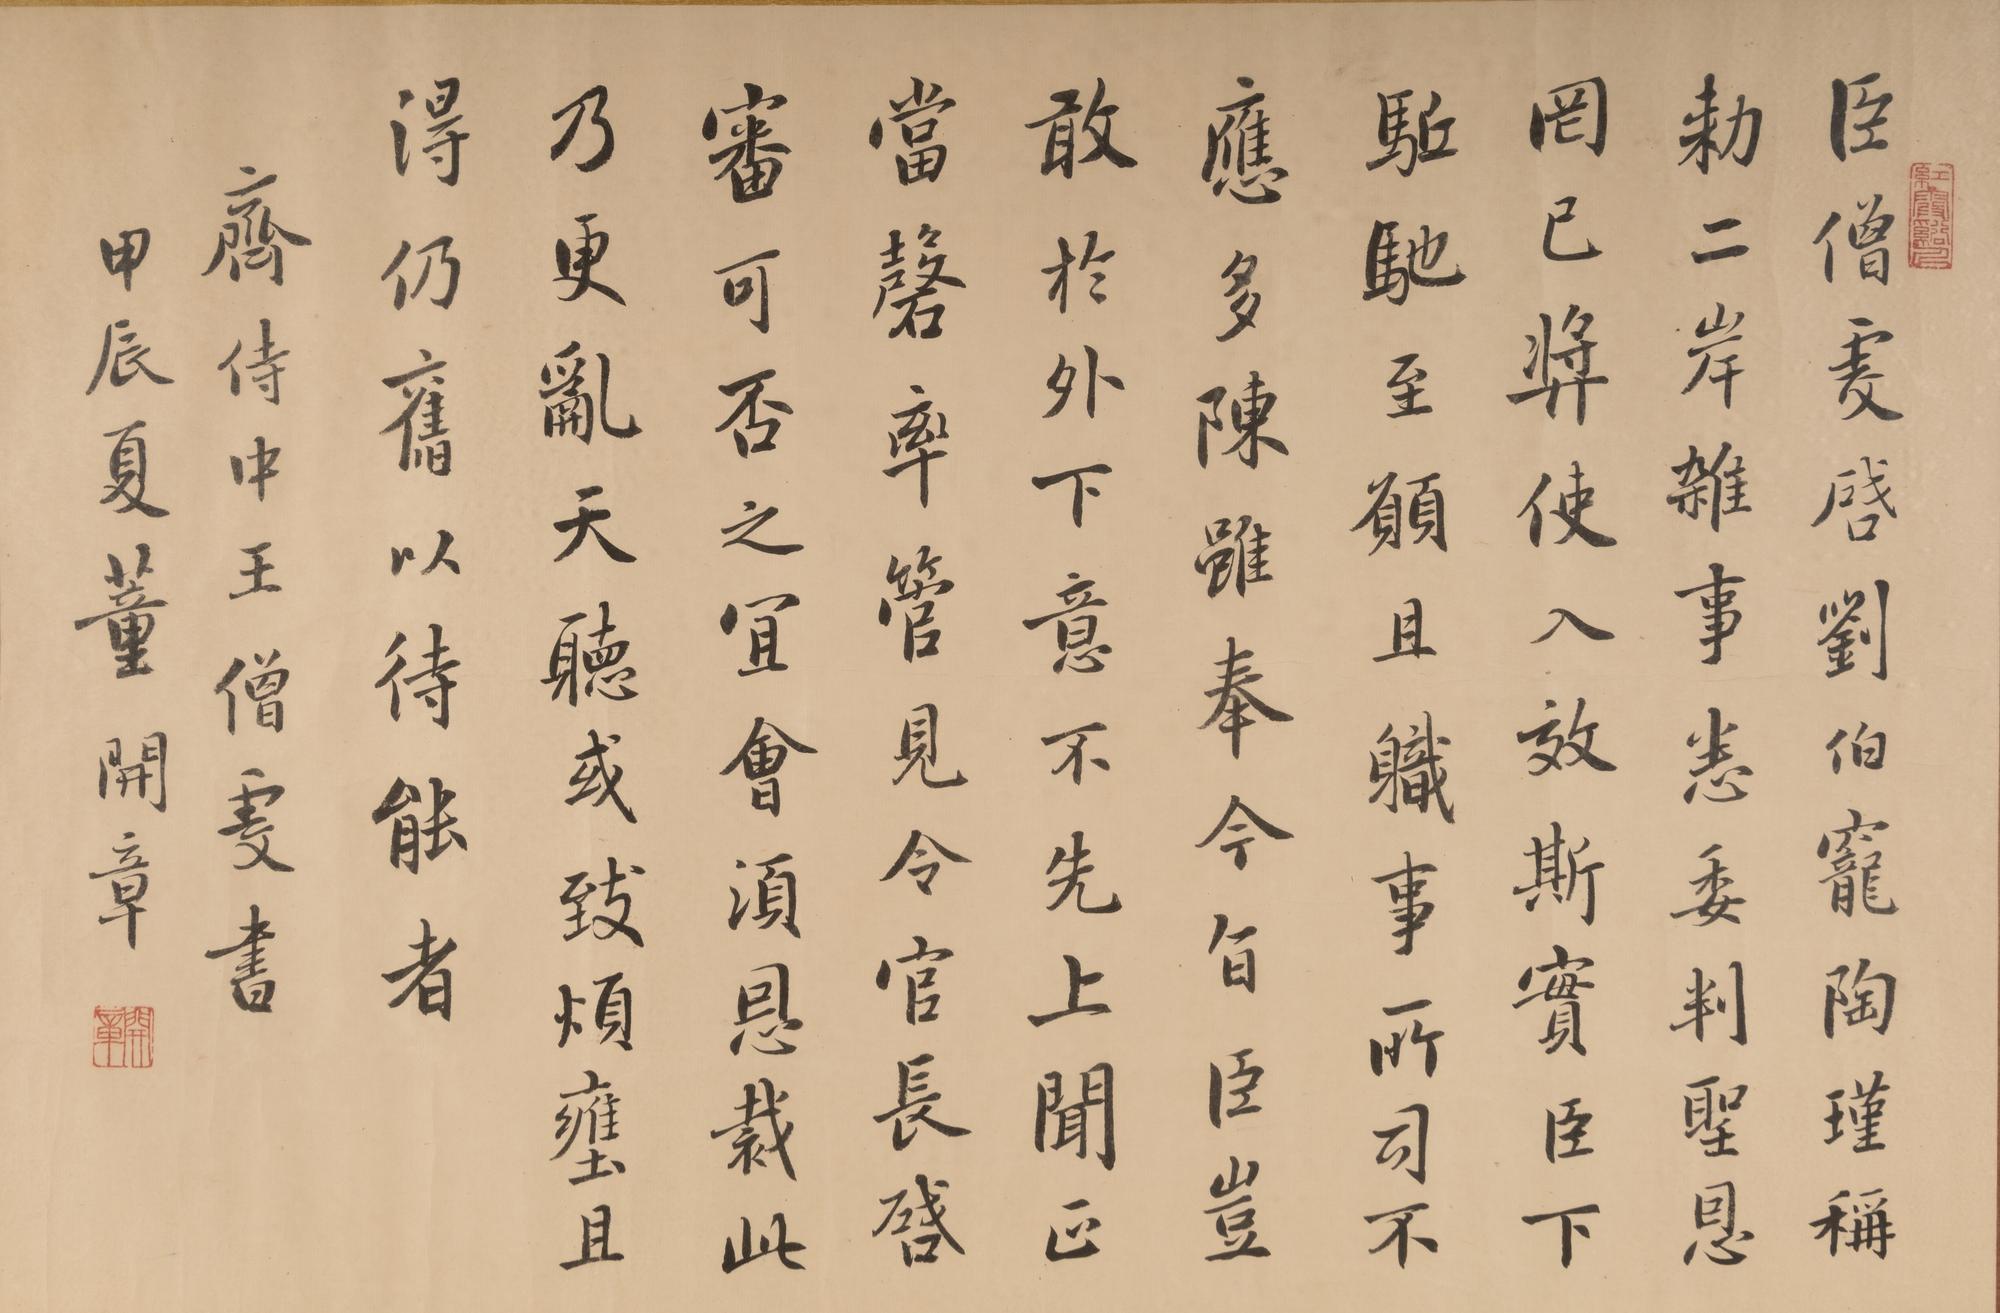 臣僧虔啓劉伯寵陶瑾稱
勅二岸雜事悉委判聖恩
罔已弉使入效斯實臣下
駈馳至願且職事所司不
應多陳雖奉今旨臣豈
敢於外下意不先上聞正
當磬率管見令官長啓
審可否之宜會須恩裁此
乃更亂天聽或致煩壅且
得仍舊以待能者
齊侍中王僧虔書
甲辰夏董開章